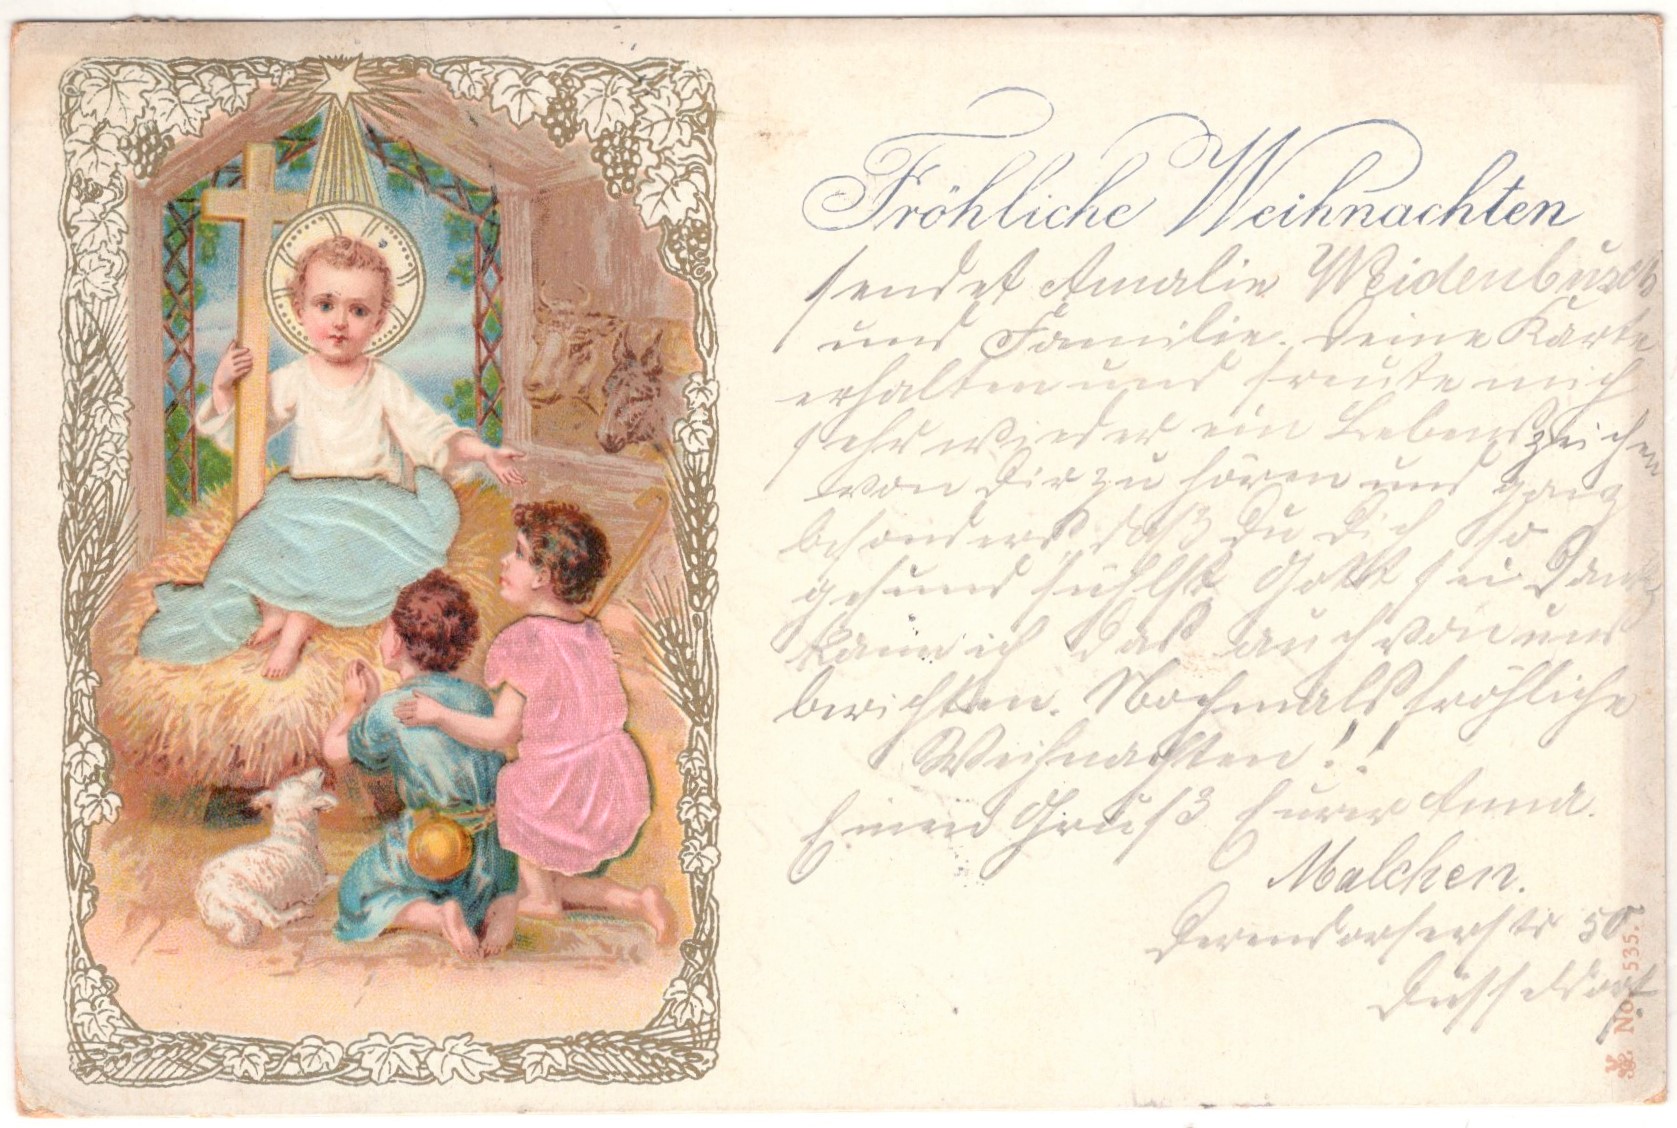 Fröhliche Weihnachten
sendet Amalie Weidenbusch
und Familie. Deine Karte
erhalten und freute mich
sehr wieder ein Lebenszeichen
von Dir zu hören und ganz
besonders daß Du Dich so
gesund fühlst Gott sei Dank
kann ich das auch von uns
berichten. Nochmals fröhliche
Weihnachten!!
Einen Gruß Eurer Anna.
Malchen.
Derendorferstr 50
Düsseldorf
No 535.